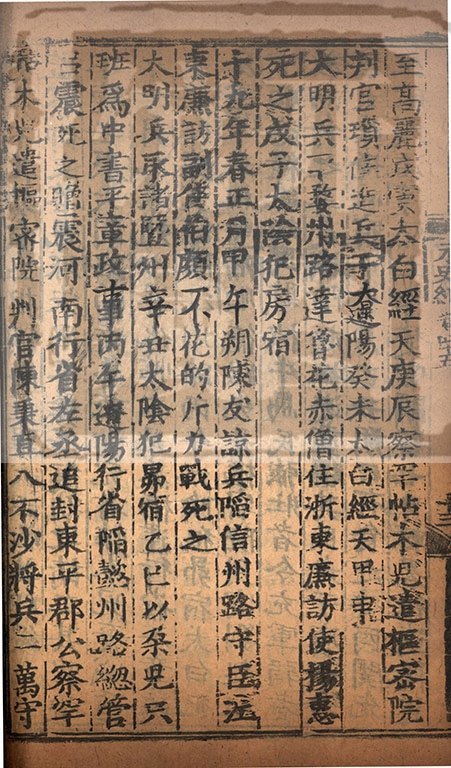 至高麗戊寅太白經天庚辰察罕帖木兒遣樞密院
判官瑣住進兵于遼陽癸未太白經天甲申
大明兵下婺州路達魯花赤僧住浙東廉訪使揚惠
死之戊子太陰犯房宿
十九年春正月甲午朔陳友諒兵陷信州路守臣江
東廉訪副使伯顏不花的斤力戰死之
大明兵取諸曁州辛丑太陰犯昴宿乙巳以朶兒只
班爲中書平章政事丙午遼陽行省陷懿州路緫管
呂震死之贈震河南行省左丞追封東平郡公察罕
帖木兒遣樞密院判官陳秉直八不沙將兵二萬守